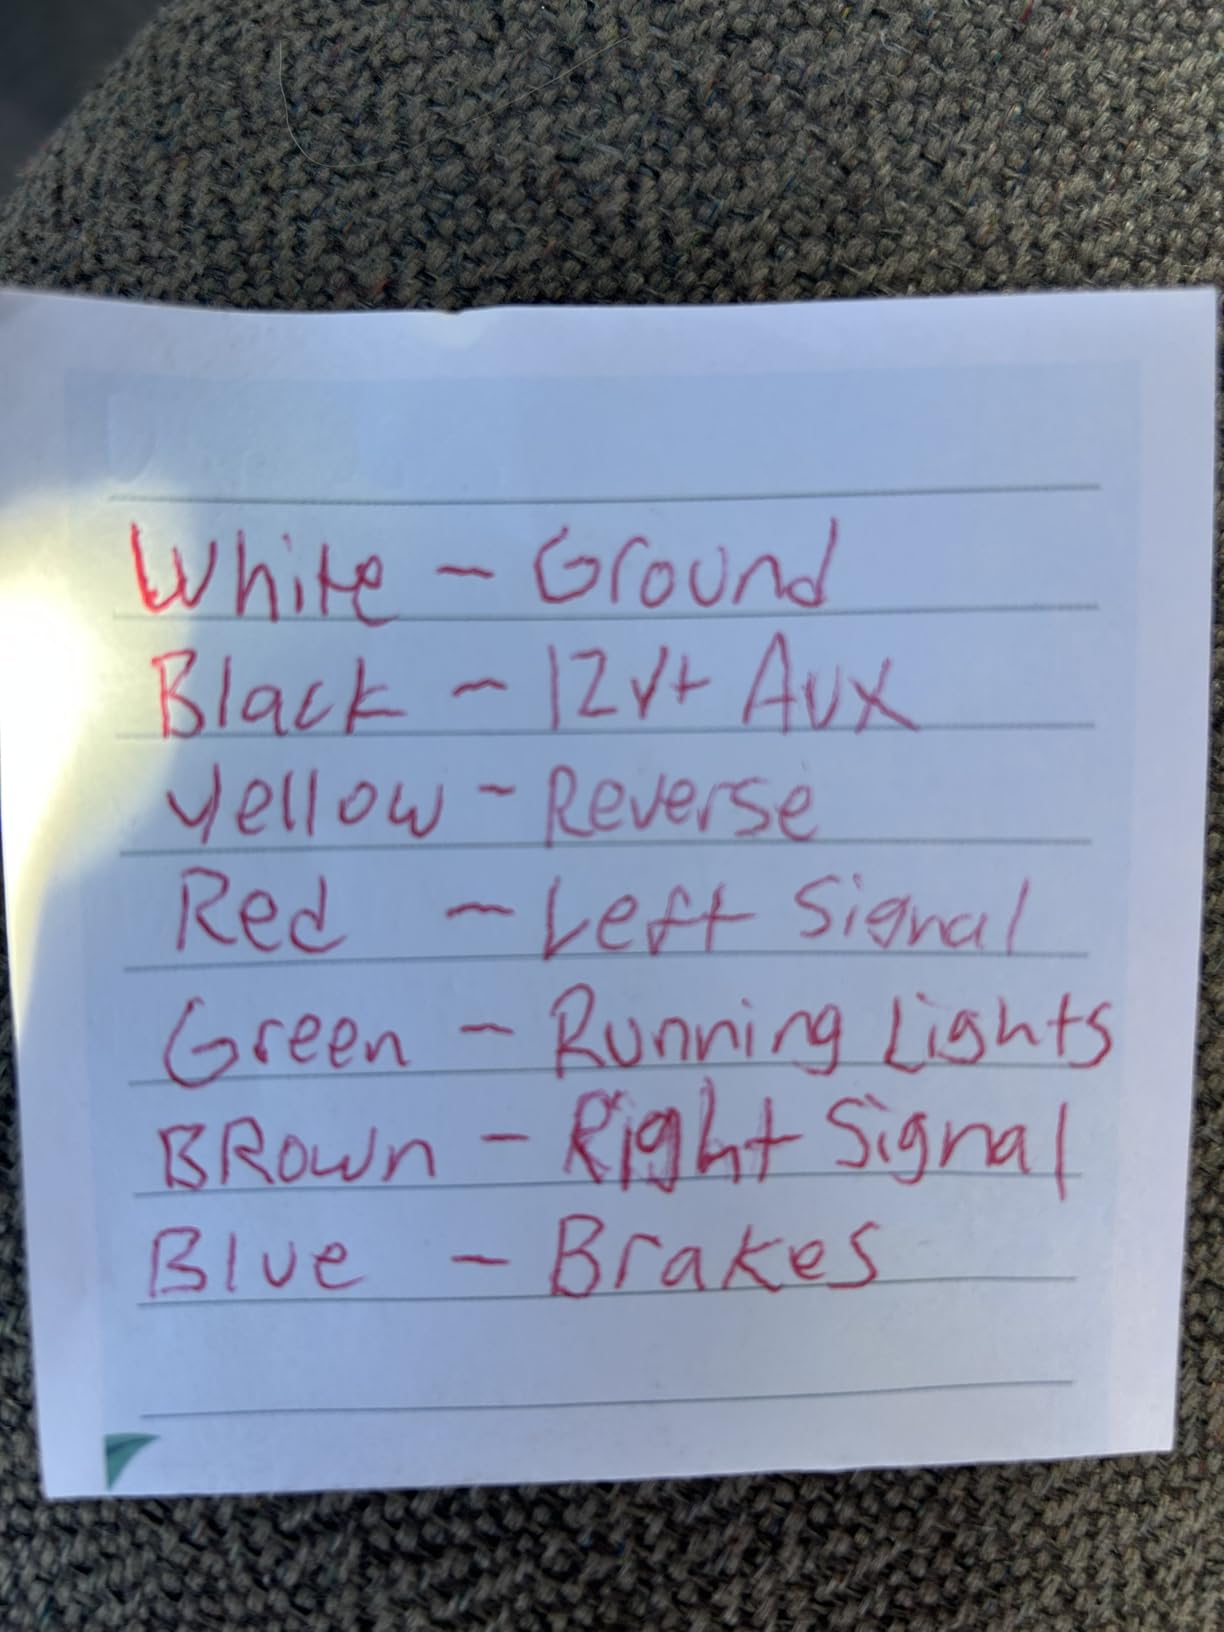 White - Ground
Black - 12v+ Aux
Yellow - Reverse
Red - Left Signal
Green - Running Lights
BROwn - Right Signal
Blue - Brakes